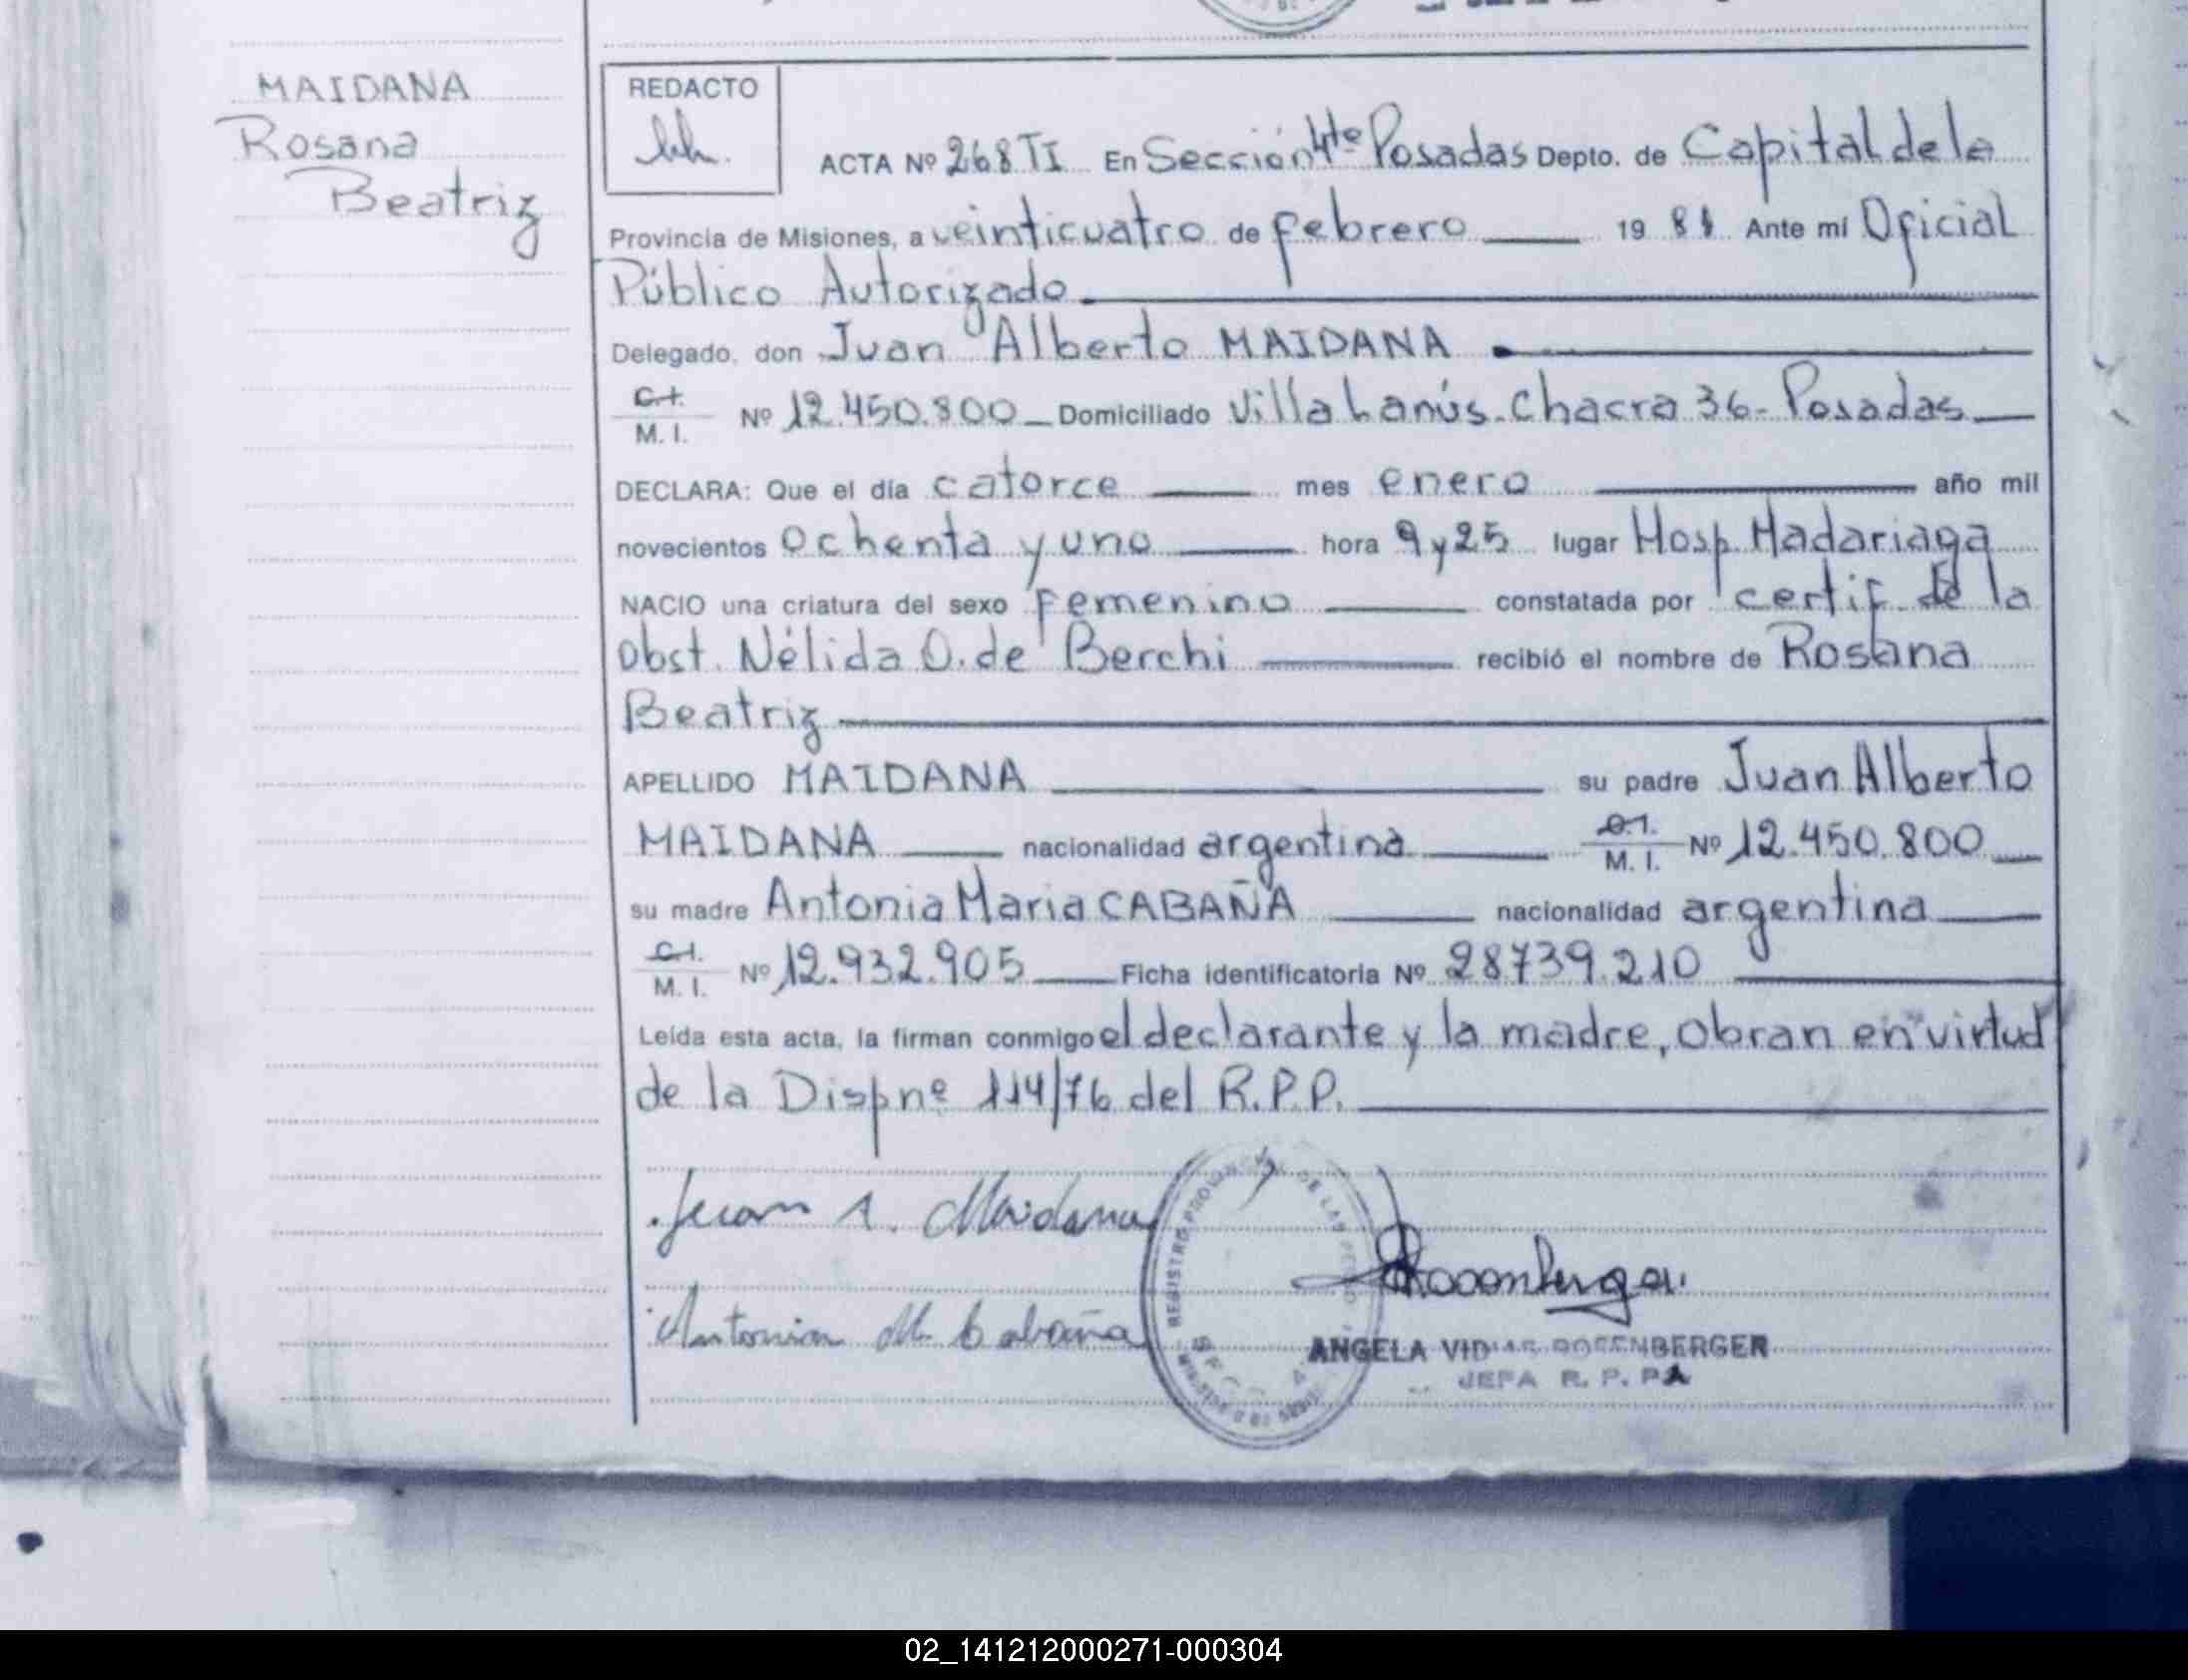 MAIDANA
Rosana
Beatriz
REDACTO
ACTA Nº 268 TI En Sección 4ta Posadas Depto. de Capital de la
Provincia de Misiones, a veinticuatro de febrero 1981 Ante mí Oficial
Público Autorizado.
Delegado, don Juan Alberto MAIDANA
C.I.
M. I. Nº 12.450.800 Domiciliado Villa Lanús - Chacra 36 - Posadas
DECLARA: Que el día catorce mes enero año mil
novecientos ochenta y uno hora 9 y 25 lugar Hosp. Madariaga
NACIO una criatura del sexo femenino constatada por certif. de la
obst. Nélida O. de Berchi recibió el nombre de Rosana
Beatriz
APELLIDO MAIDANA su padre Juan Alberto
MAIDANA nacionalidad argentina C.I.
M. I. Nº 12.450.800
su madre Antonia Maria CABAÑA nacionalidad argentina
C.I.
M. I. Nº 12.932.905 Ficha identificatoria Nº 28739.210
Leída esta acta, la firman conmigo el declarante y la madre, obran en virtud
de la Disp nº 114/76 del R.P.P.
Juan A. Maidana
Antonia M. Cabaña
Rosenberger
REGISTRO PROVINCIAL DE LAS PERSONAS
ANGELA VIDMAS ROSENBERGER
JEFA R. P. P.
02_141212000271-000304